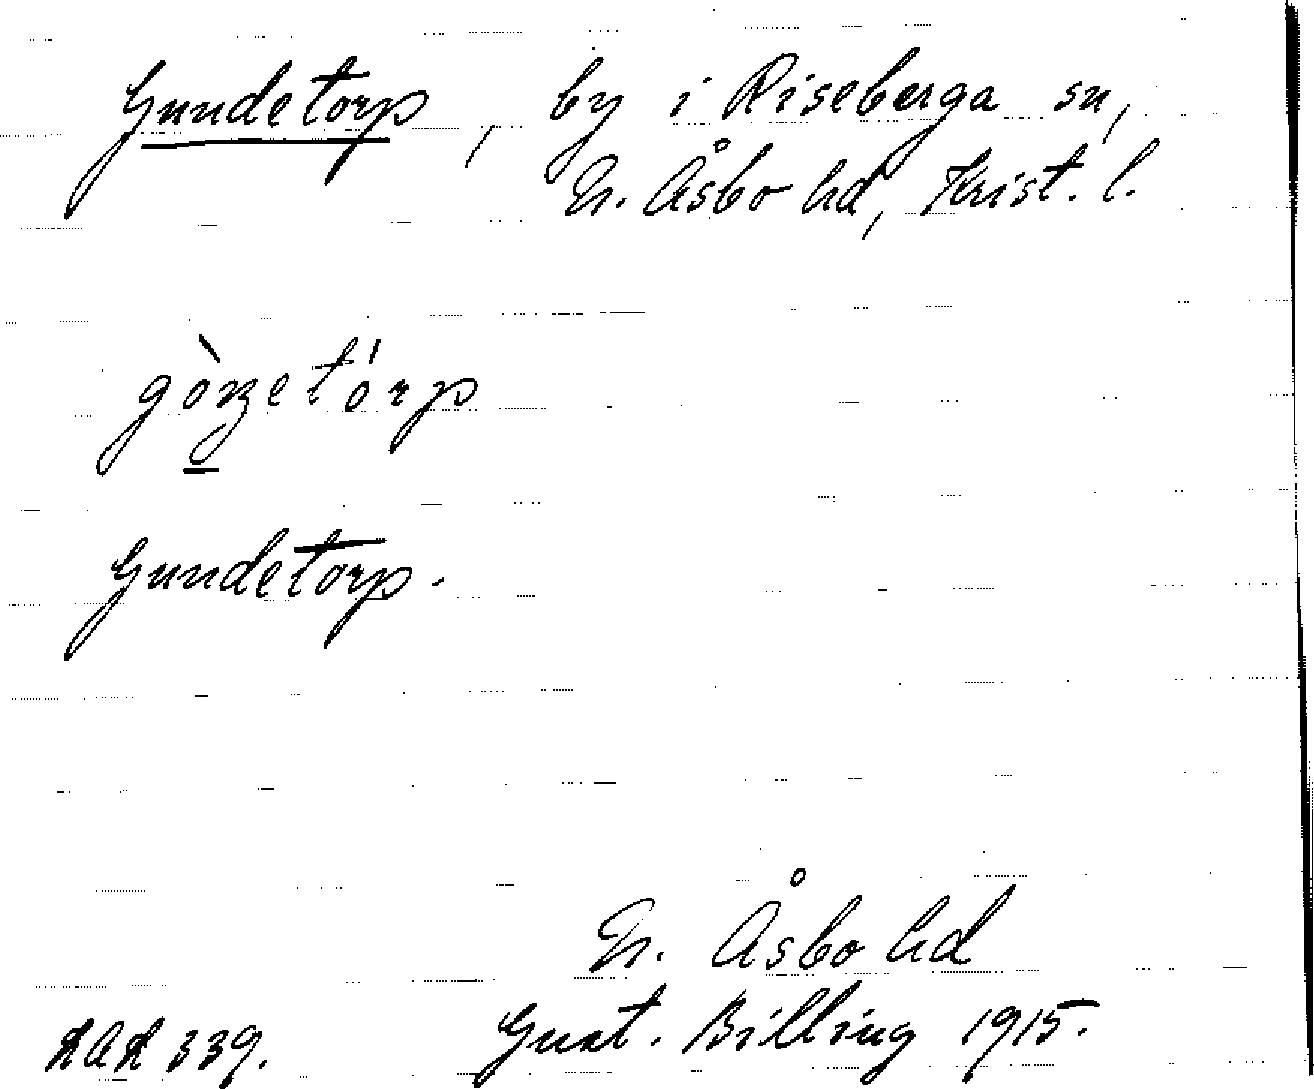 Gundetorp, by i Riseberga sn,
N. Åsbo hd, Krist. l.
Gundetorp.
N. Åsbo hd
LAL 339. Gust. Billing 1915.